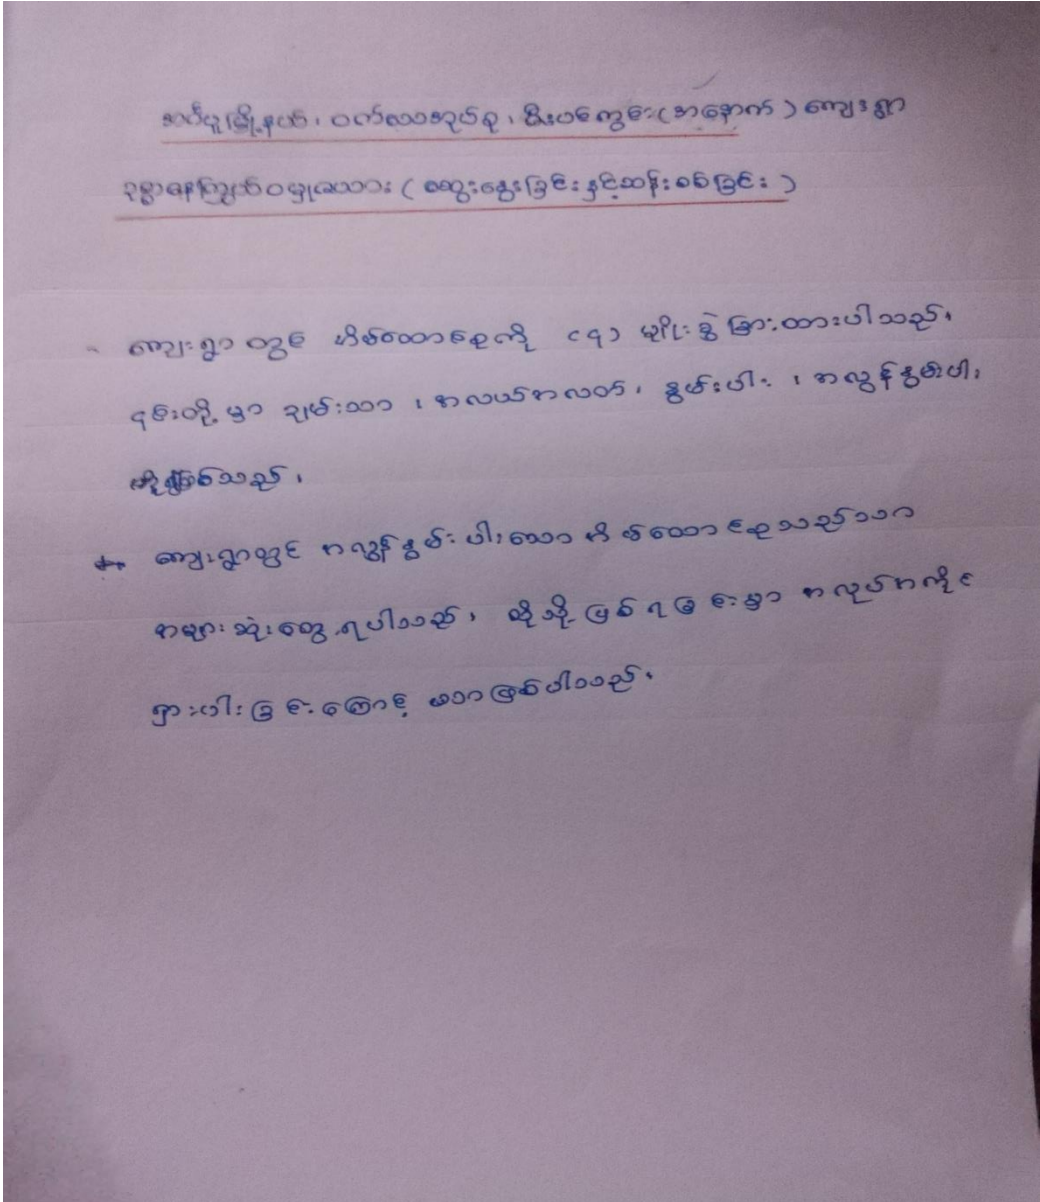 သပြေမြို့နယ်၊ ဝက်လာအုပ်စု၊ (အနောက်) ကျေးရွာ
ကြွယ်ဝမှုဇယား (ဆွေးနွေးခြင်းနှင့်ဆန်းစစ်ခြင်း)
- ကျေးရွာ တွင် အိမ်ထောင်စုကို (၄) မျိုး ခွဲ ခြား ထားပါသည်၊
၎င်းတို့ မှာ ချမ်းသာ ၊ အလယ်အလတ်၊ နွမ်းပါး ၊ အလွန်နွမ်းပါး
တို့ဖြစ်သည်၊
ကျေးရွာတွင် အလွန်နွမ်းပါးသော အိမ်ထောင်စုသည်သာ
အများဆုံး တွေ့ရပါသည်၊ ထိုသို့ ဖြစ်ရခြင်းမှာ အလုပ်အကိုင်
ရှားပါးခြင်းကြောင့် ဖြစ်ပါသည်၊